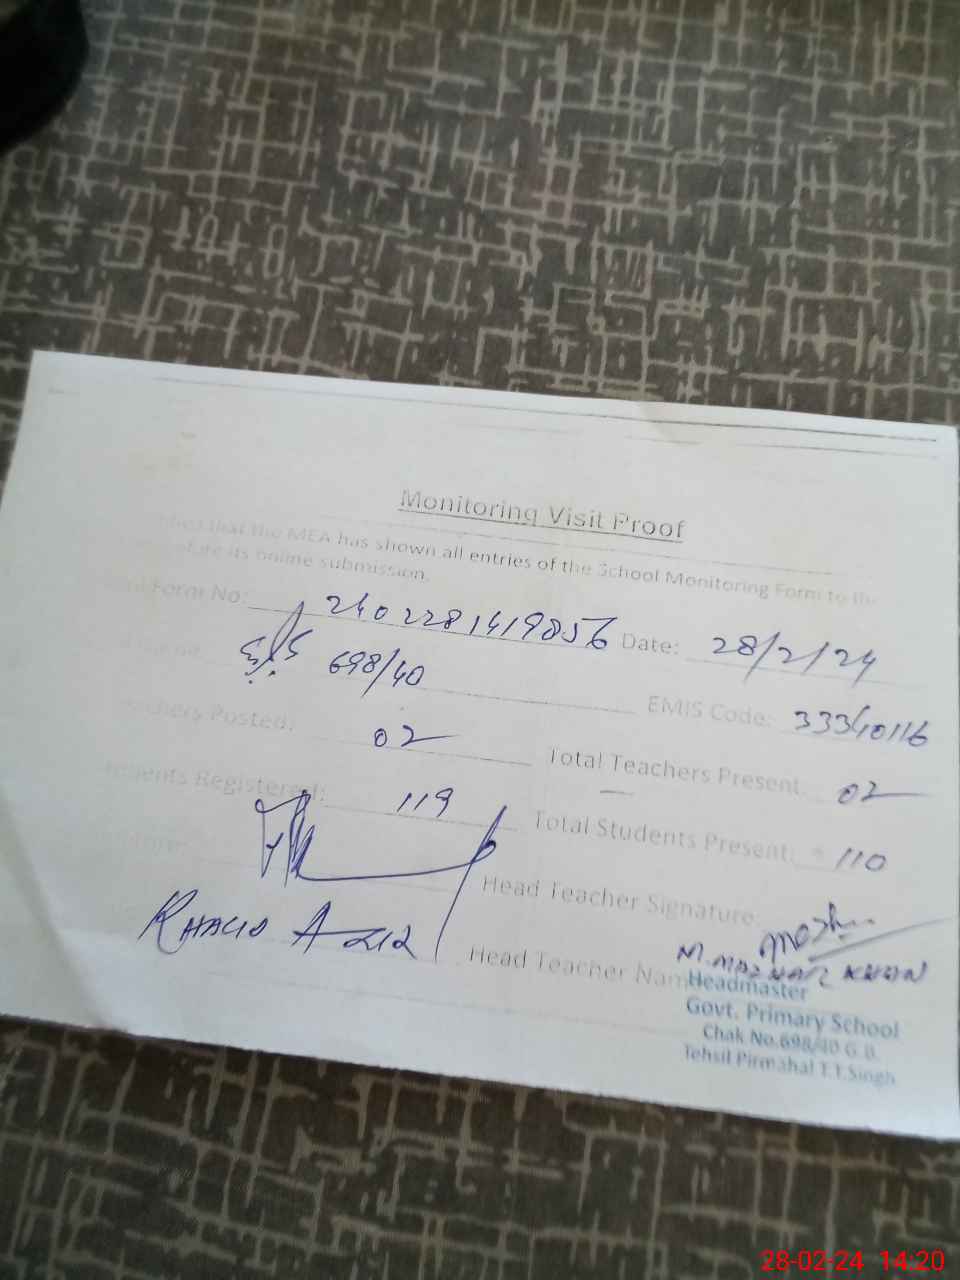 Monitoring Visit Proof
that the MEA has shown all entries of the School Monitoring Form to the
its online submission.
Form No: 2402281419856 Date: 28/2/24
698/40 EMIS Code: 33340116
Posted: 02 Total Teachers Present: 02
Registered: 119 Total Students Present: 110
Head Teacher Signature
KHALID AZIZ Head Teacher Name
M. MAZHAR KHAN
Headmaster
Govt. Primary School
Chak No.698/40 G.B.
Tehsil Pirmahal T.T.Singh
28-02-24 14:20